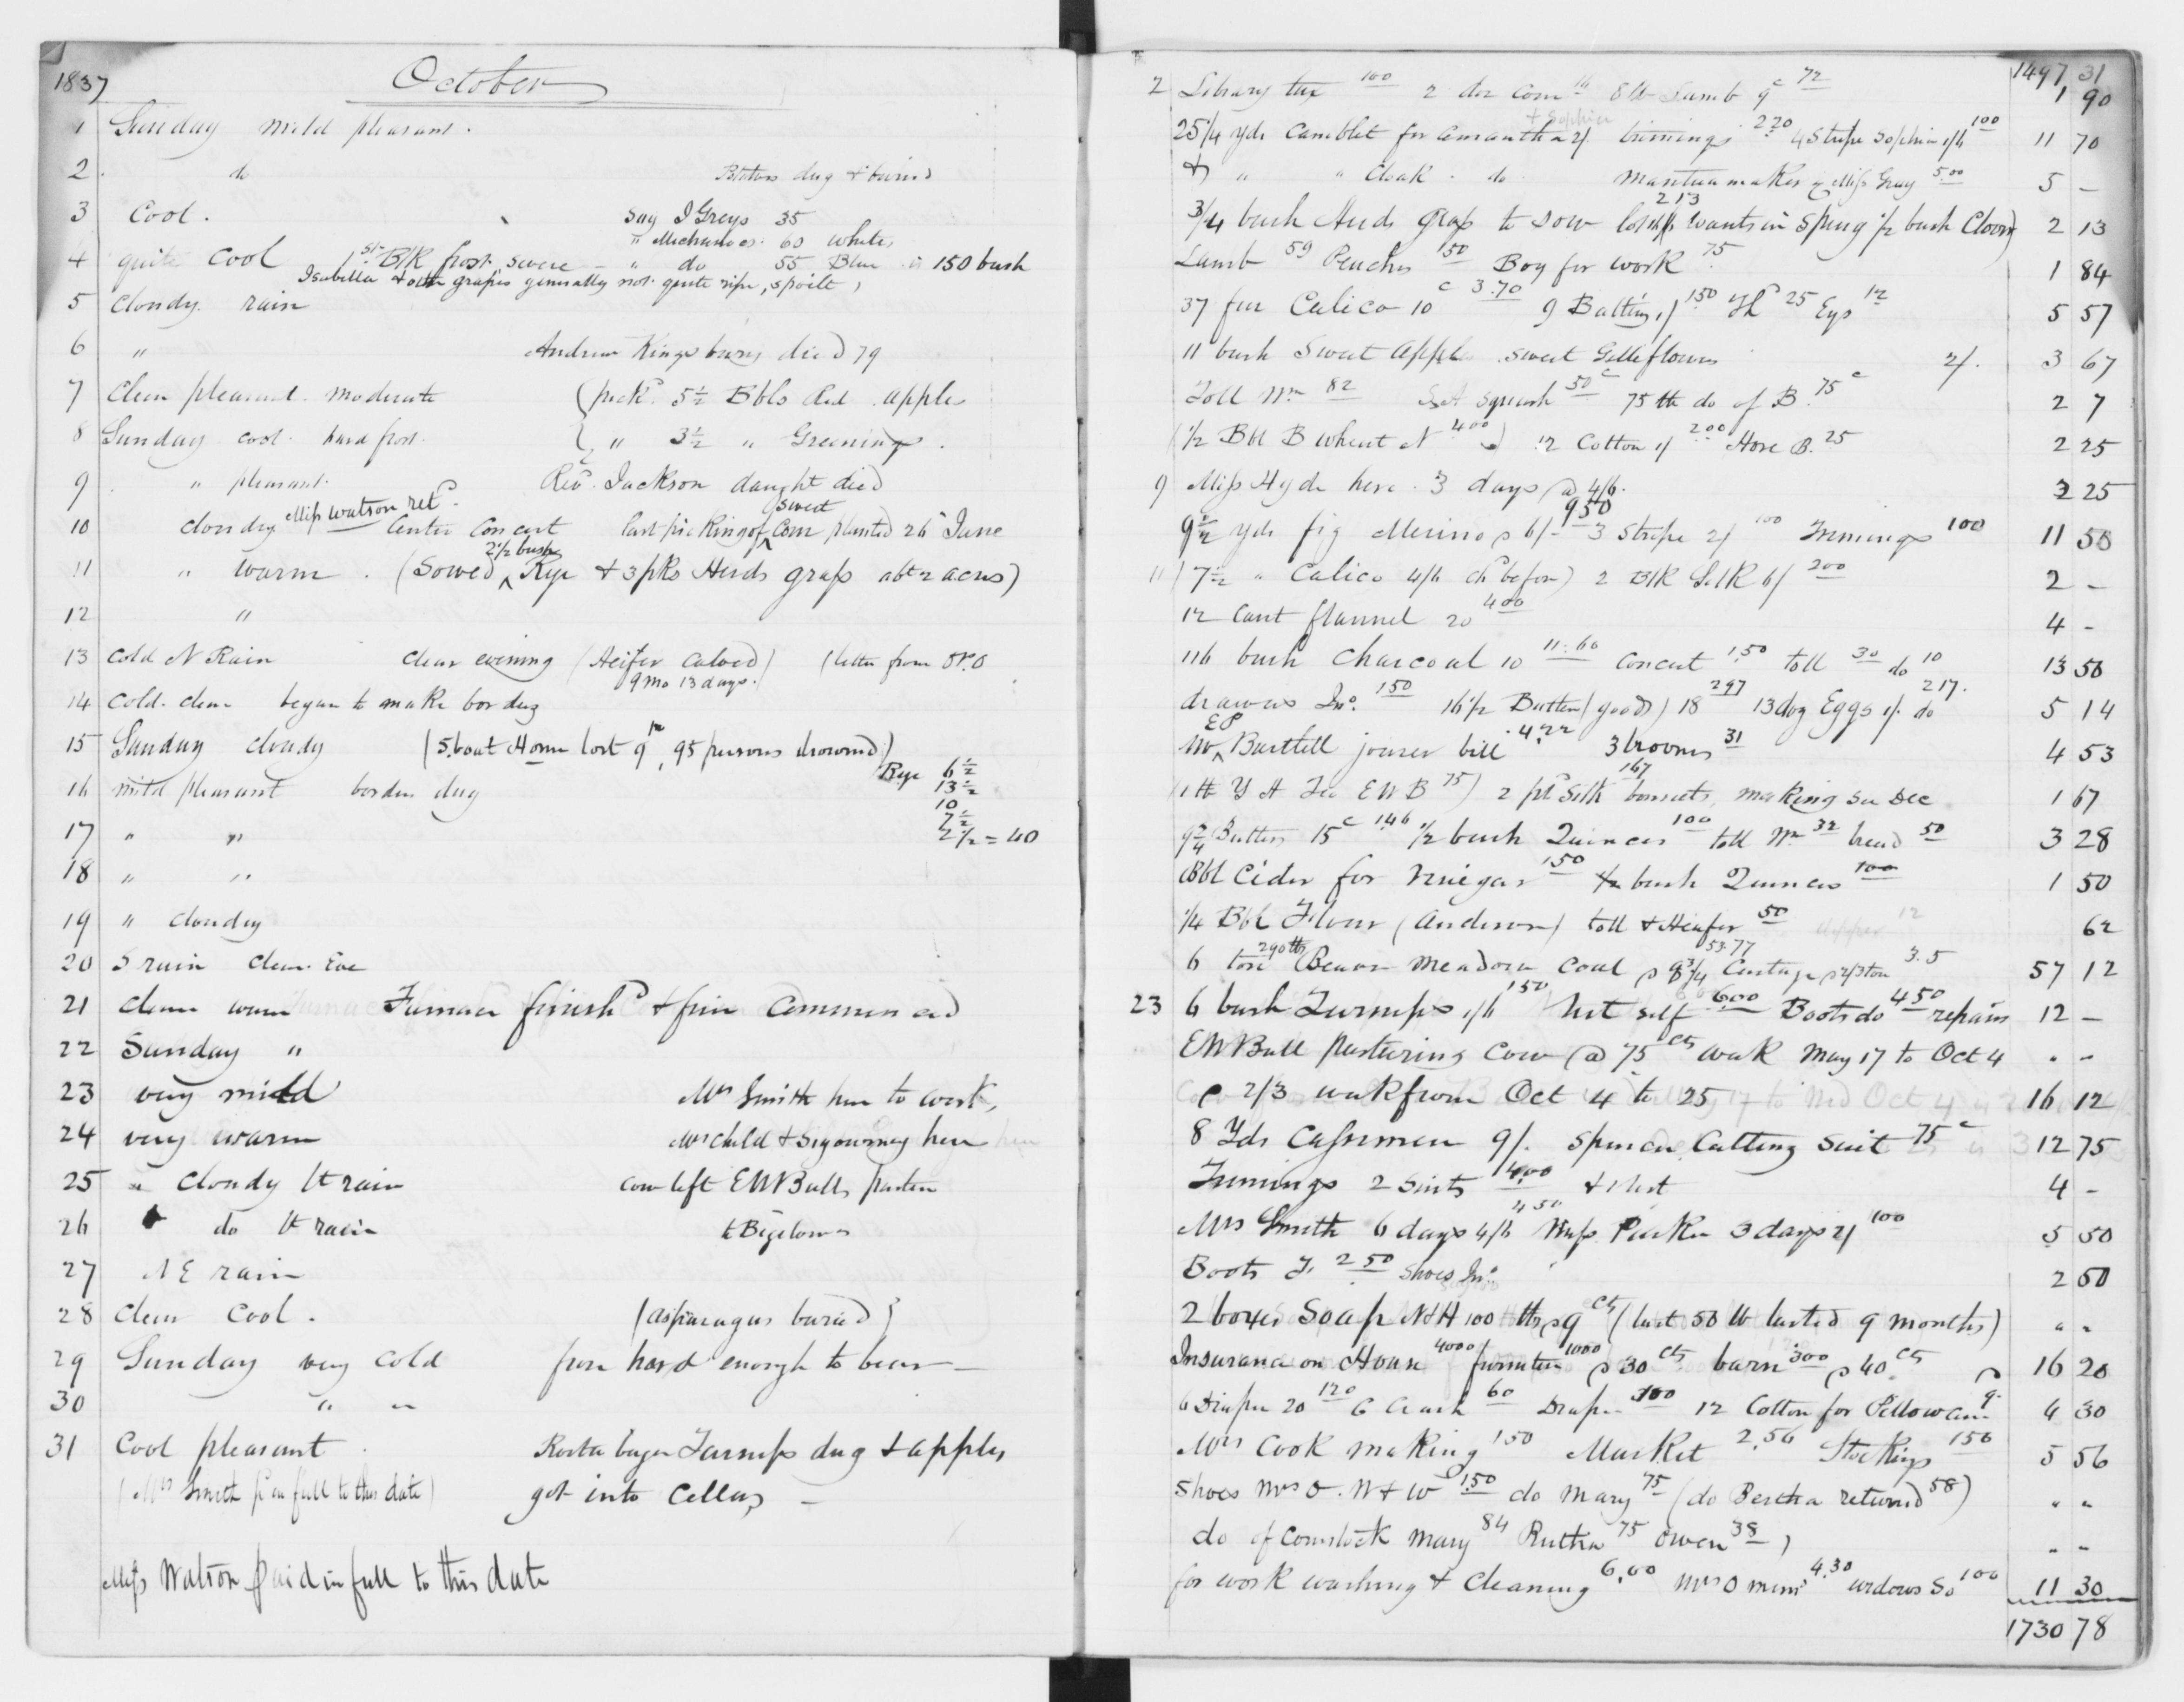 1837 October
1 Sunday mild pleasant.
2 do Potatoes dug & buried
3 Cool. Say I Greys 35
" Mechanoes. 60 white
4 quite cool 1st Blk frost. severe — " do 55 Blue is 150 bush
Isabella & oth grapes generally not quite ripe, spoilt,
5 Cloudy. rain
6 " Andrew Kingsbury died 79
7 Clear pleasant. moderate (pick.d 5 1/2 Bbls Red apples
8 Sunday cool. hard frost. " 3 1/2 " Greenings.
9 " pleasant. Rev.d Jackson daught died
10 cloudy Miss Watson retd. Center Concert last picking of sweet Corn planted 26 June
11 " warm. (Sowed 2 1/2 bush Rye & 3 pks Herds grass abt 2 acres)
12 "
13 Cold N Rain Clear evening (Heifer Calved) (letter from
9 mo 13 days.
14 Cold. clear began to make bordug
15 Sunday cloudy (S.boat Home lost 9th, 95 persons drowned)
Rye 6 1/2
16 mild pleasant border dug 13 1/2
10
17 " " 7 1/2
2 1/2 = 40
18 " "
19 " cloudy
20 S rain clear. Eve
21 clear warm Furnace finishd & fire Commenced
22 Sunday "
23 very mild Mrs Smith here to work,
24 very warm Mrs Child & Sigourney here
25 " Cloudy lt rain cow left EWBulls pasture
26 do lt rain to Bigelows
27 N E rain
28 Clear Cool. (asparagus buried)
29 Sunday very cold froze hard enough to bear —
30 " "
31 Cool pleasant Roota baga Turnips dug & apples
(Mrs Smith pd in full to this date) got into Cellar, —
Miss Watson paid in full to this date
1497 31
2 Library tax 100 2 doz Corn 16 8 lb Lamb 9c 72 1 90
& Sophia
25 1/4 yds Camblet for Amantha 2/. trimings 2.20 4 Stripe Sophia 1/6 100 11 70
& " " Cloak. do. Mantuamaker Miss Gray 5.00 5 –
3/4 bush Herds grass to sow 213 wants in Spring 1/2 bush Clover) 2 13
Lamb 59 Peaches 150 Boy for work 75 1 84
37 fur Calico 10c 3.70 9 Batting 1/ 150 25 Eggs 12 5 57
11 bush Sweet Apple sweet Gilliflowers 2/. 3 67
Toll Wm 82 squash 50c 75 lb do of B. 75c 2 7
(1/2 Bbl B wheat N 400) 12 Cotton 1/ 200 Hose B. 25 2 25
9 Miss Hyde here. 3 days @ 4/6. 2 25
9 1/2 yds fig Merino 6/- 950 3 Stripe 2/ 100 Trimings 100 11 50
11 (7 1/2 " Calico 4/6 chd before) 2 Blk Silk 6/ 200 2 –
12 Cant flannel 20 400 4 –
116 bush Charcoal 10 11.60 Concert 1.50 toll 30 do 10 13 50
drawers Jno. 150 16 1/2 Butter (good) 18 297 13 doz Eggs 1/. do 217. 5 14
Mr EP Bartlell joiner bill 4.22 3 brooms 31 4 53
(1 lb Y H Tea EWB 75) 2 pr Silk bonnets 167 making su Dec 1 67
9 3/4 Butter 15c 146 1/2 bush Quinces 100 toll Wm 32 bread 50 3 28
Bbl Cider for Vinegar 150 1/2 bush Quinces 100 1 50
1/4 Bbl Flour (Anderson) toll & Heifer 50 12 62
6 ton 290 lbs Beaver meadow Coal 8 3/4 53.77 Cartage 2/3 ton 3.5 57 12
23 6 bush Turnips 1/6 150 hat self 600 Boots do 450 repairs 12 –
EWBull pasturing Cow @ 75 cts week May 17 to Oct 4 " –
2/3 week from Oct 4 to 25 16 12
8 Yds Cassimere 9/. Spencer Cutting Suit 75c 12 75
Trimings 2 Suits 400 & Vest 4 –
Mrs Smith 6 days 4/6 450 Miss Parker 3 days 2/ 100 5 50
Boots T. 250 Shoes Jno. 2 50
2 boxes Soap N & H 100 lbs 9 cts (last 50 lb lasted 9 months) " "
Insurance on House 4000 furniture 1000 30 cts barn 300 40 cts 16 20
6 Diaper 20 120 6 Crash 60 Draper 100 12 Cotton for Pillowcases 4 30
Mrs Cook making 150 Market 2.56 Stockings 150 5 56
Shoes Mrs O. W & W 1.50 do Mary 75 (do Bertha returned 58) " "
do of Comstock Mary 84 Ruthia 75 Owen 38) " "
for work washing & Cleaning 6.00 Mrs O mems 4.30 widows So 100 11 30
1730 78